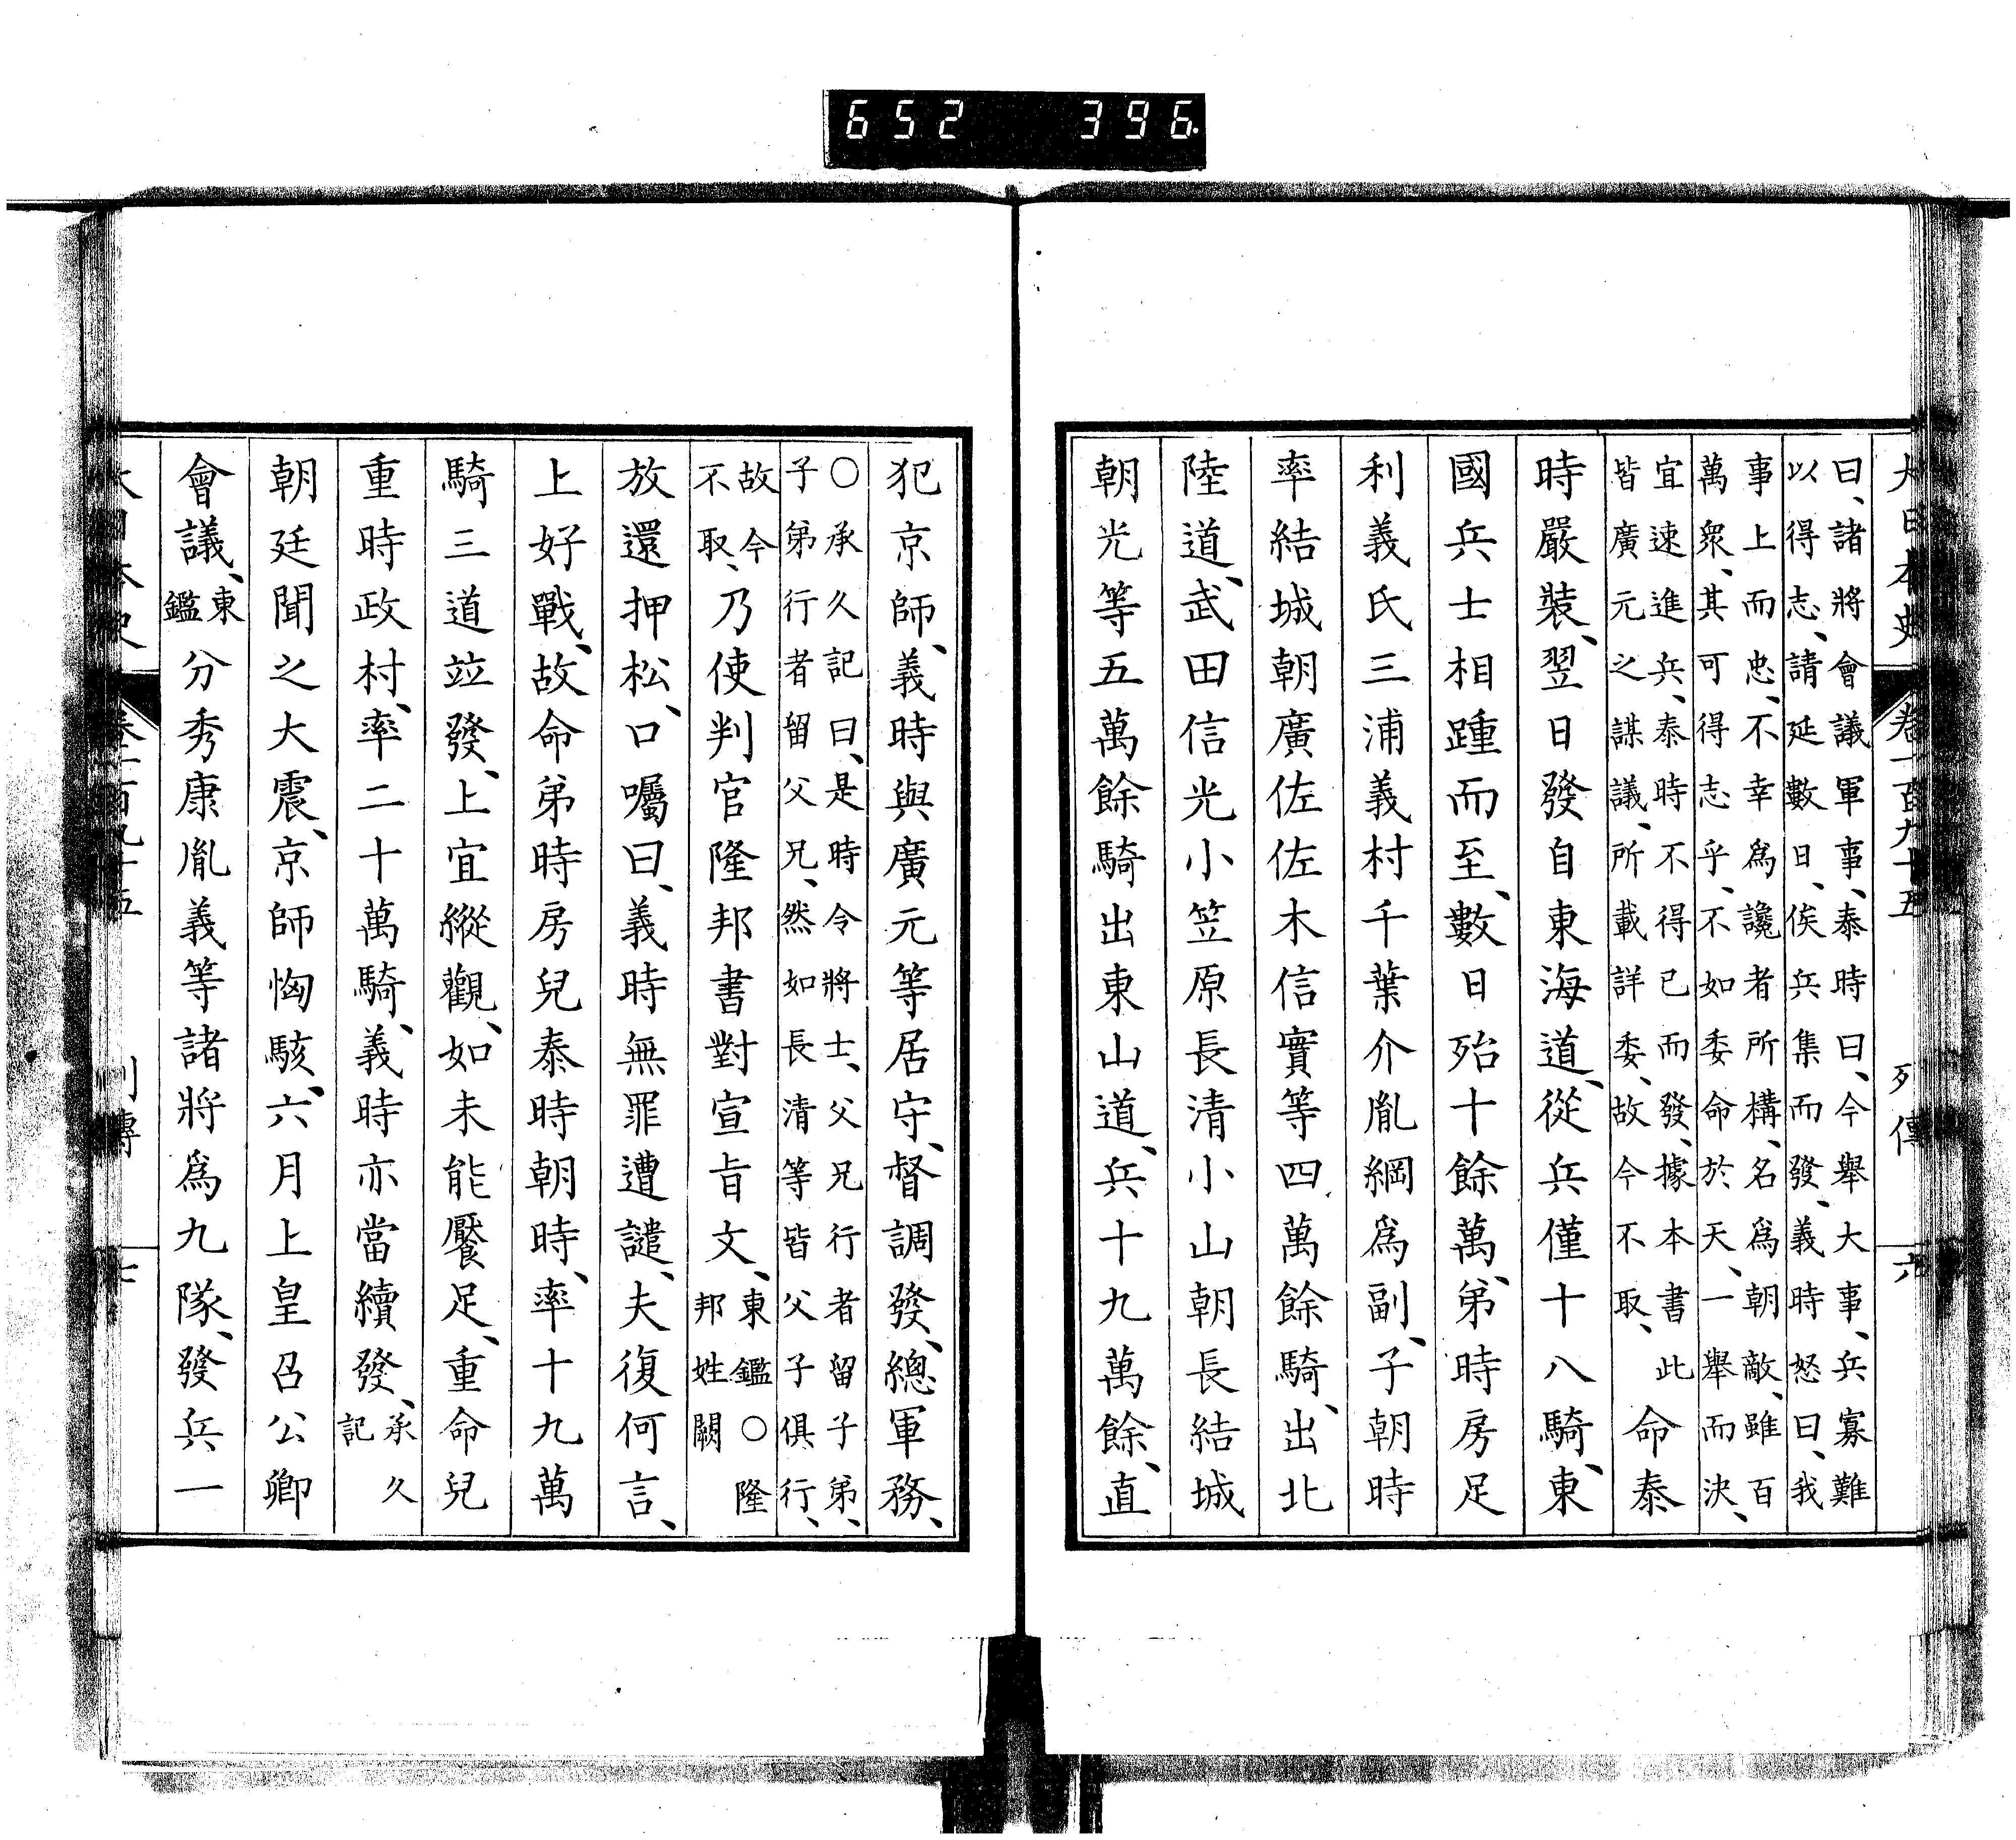 652 396
大日本史 卷一百九十五 列傳 六
曰、諸將會議軍事、泰時曰、今舉大事、兵寡難
以得志、請延數日、俟兵集而發、義時怒曰、我
事上而忠、不幸爲讒者所構、名爲朝敵、雖百
萬衆、其可得志乎、不如委命於天、一舉而決、
宜速進兵、泰時不得已而發、據本書此
皆廣元之謀議、所載詳委、故今不取、
命泰
時嚴裝、翌日發自東海道、從兵僅十八騎、東
國兵士相踵而至、數日殆十餘萬、弟時房足
利義氏三浦義村千葉介胤綱爲副、子朝時
率結城朝廣佐佐木信實等四萬餘騎、出北
陸道、武田信光小笠原長清小山朝長結城
朝光等五萬餘騎出東山道、兵十九萬餘、直
犯京師、義時與廣元等居守、督調發、總軍務、
○承久記曰、是時令將士、父兄行者留子弟、
子弟行者留父兄、然如長清等皆父子俱行、
故今
不取、
乃使判官隆邦書對宣旨文、
東鑑○隆
邦姓闕
放還押松、口囑曰、義時無罪遭譴、夫復何言、
上好戰、故命弟時房兒泰時朝時、率十九萬
騎三道竝發、上宜縱觀、如未能饜足、重命兒
重時政村、率二十萬騎、義時亦當續發、
承久
記
朝廷聞之大震、京師恟駭、六月上皇召公卿
會議、
東
鑑
分秀康胤義等諸將爲九隊、發兵一
大日本史 卷一百九十五 列傳 七